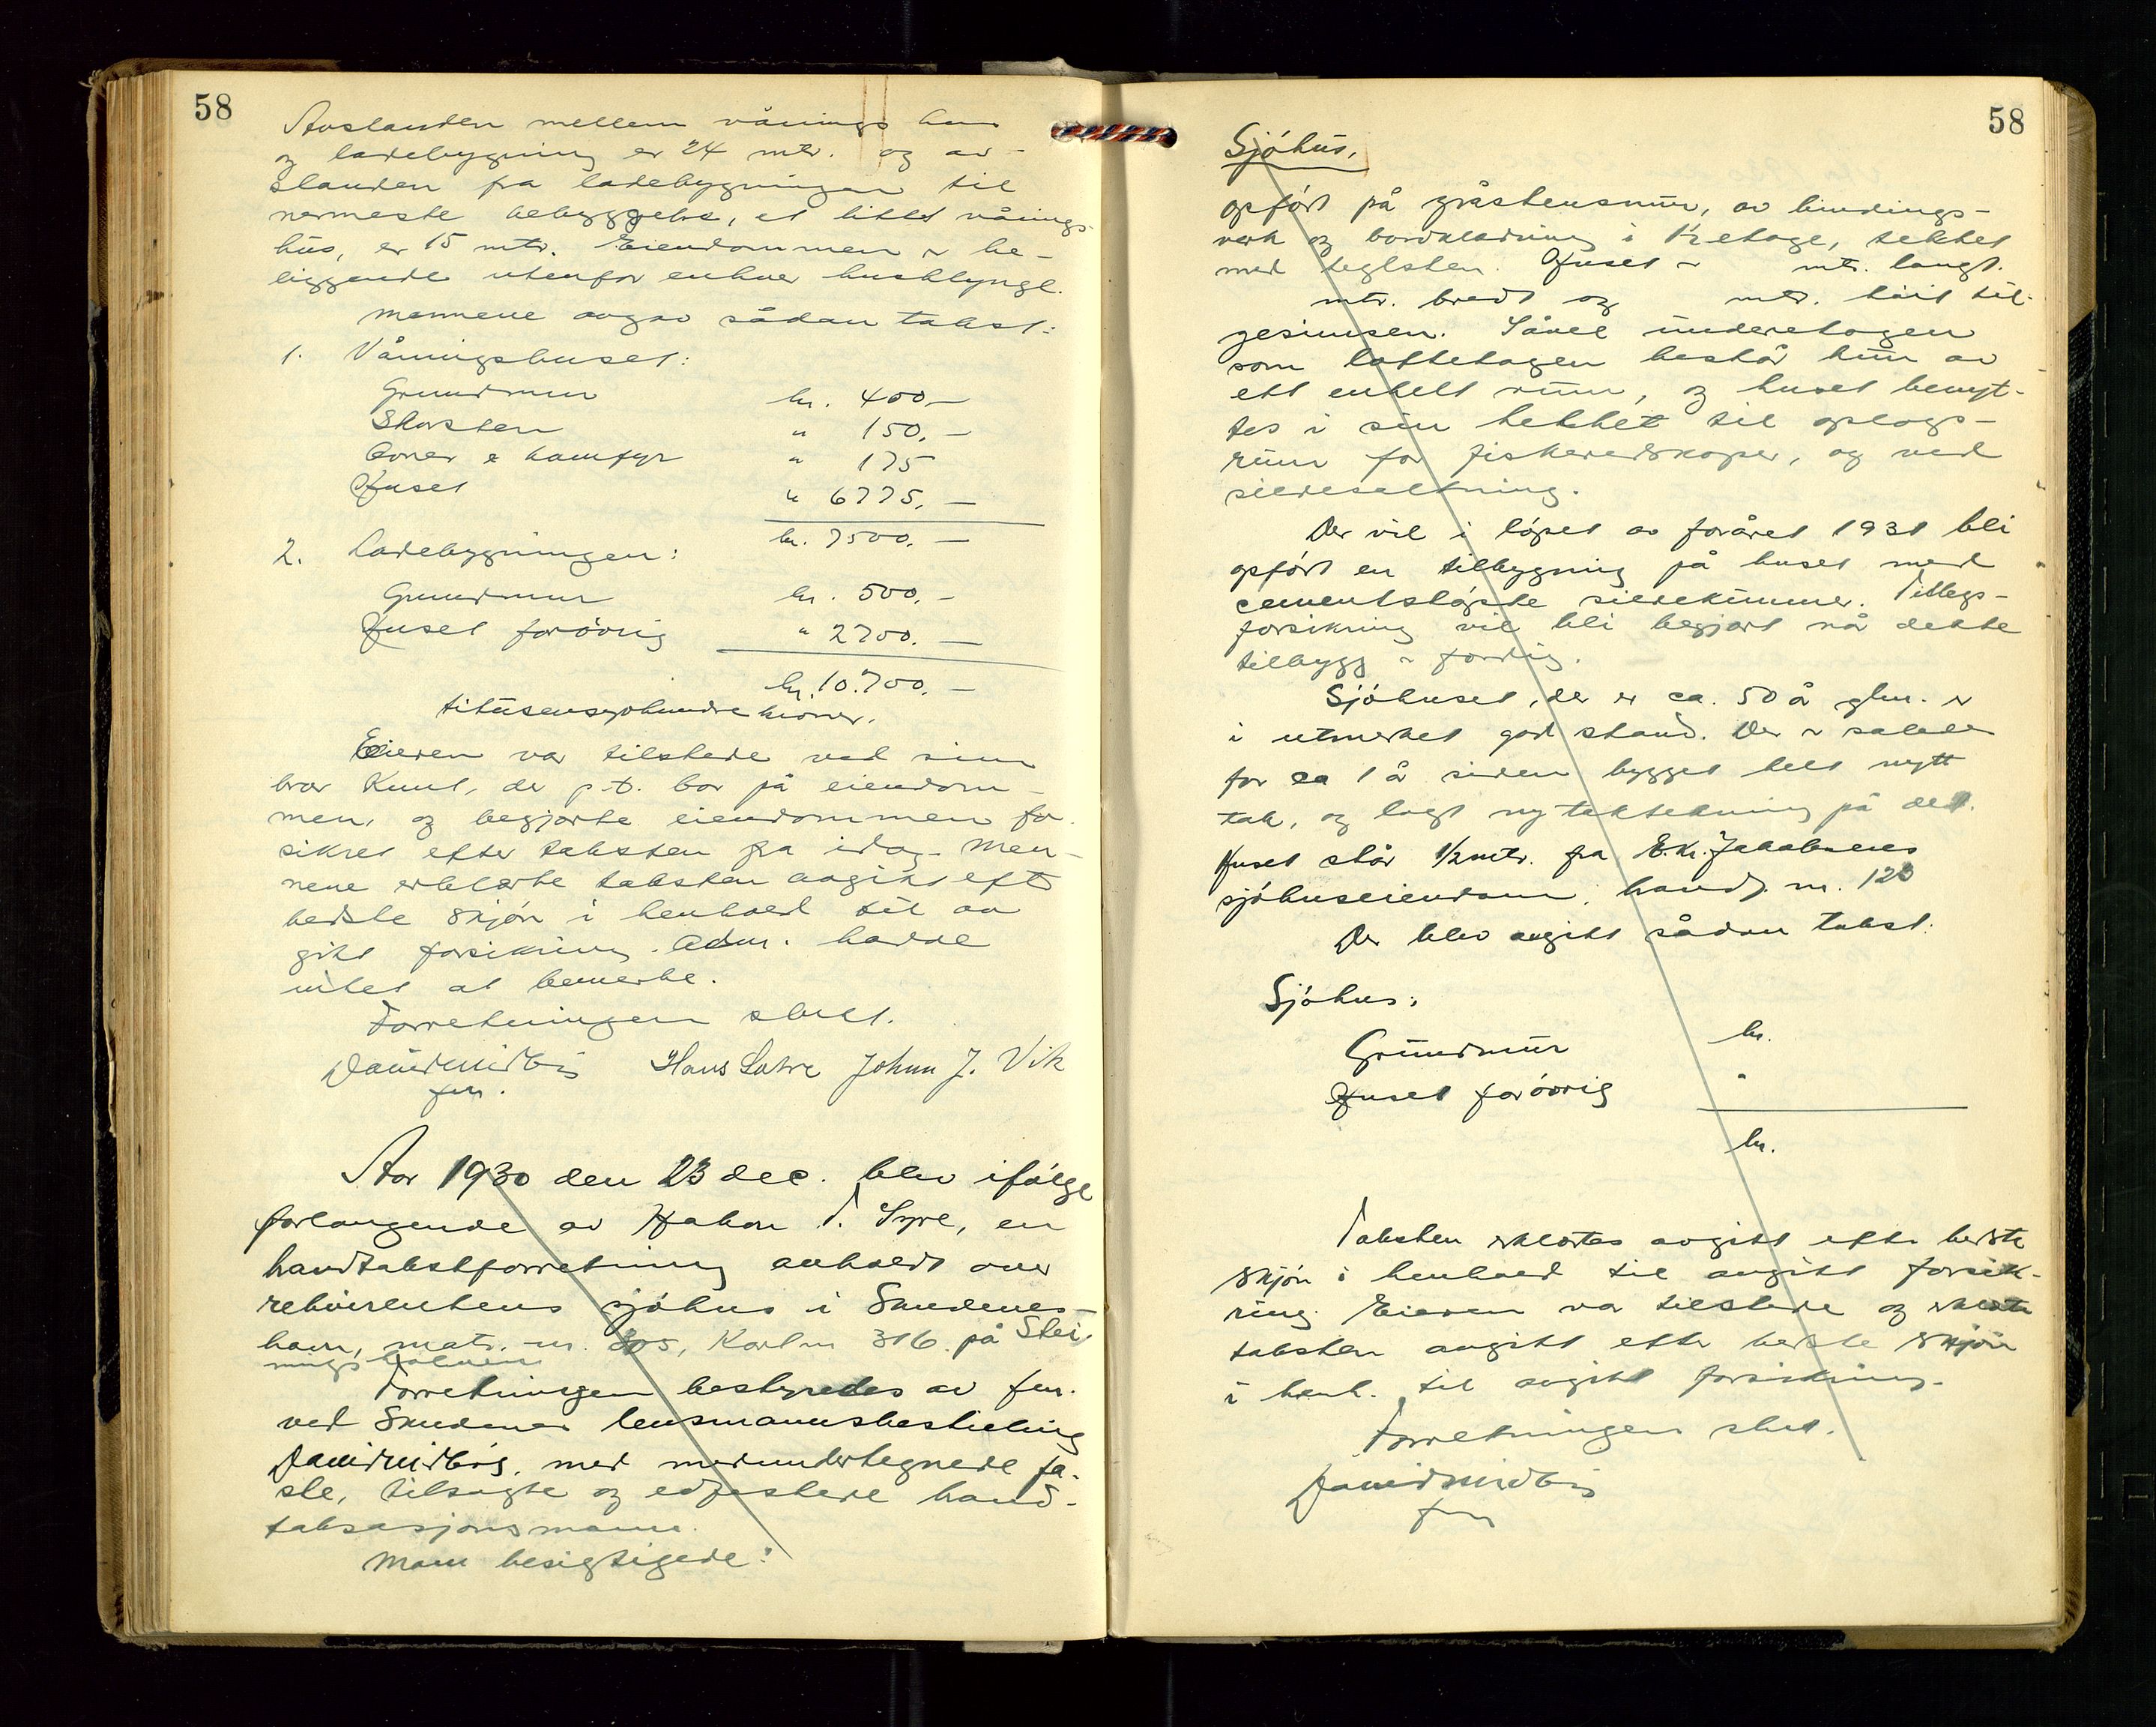 58
Avstanden mellem vånings hus
og ladebygning er 24 mtr. og av-
standen fra ladebygningen til
nermeste bebyggelse, et litet vånings-
hus, er 15 mtr. Eiendommen er be-
liggende utenfor enhver husklynge.
Mennene avgav sådan takst:
1. Våningshuset:
Grundmur kr. 400,-
Skorsten " 150,-
Ovner & komfyr " 175
Huset " 6775,-
kr. 7500,-
2. Ladebygningen:
Grundmur kr. 500,-
Huset forövrig " 2700,-
kr. 10.700,-
titusensyvhundre kroner.
Eieren var tilstede ved sin
bror Knut, der p.t. bor på eiendom-
men, og begjærte eiendommen for-
sikret efter taksten fra idag. Men-
nene erklærte taksten avgitt eft
bedste skjön i henhold til av
gitt forsikring. Adm. hadde
intet at bemerke.
Forretningen slutt.
David Midbö Hans Lahre Johan J. Vik
fm.
Aar 1930 den 23 dec. blev ifölge
forlangende av Håkon T. Syre, en
brandtakstforretning avholdt over
rekvirentens sjöhus i Skudenes-
havn, matr. nr. 305, Kartnr 316 på Stei-
ningsholmen
Forretningen bestyredes av fm.
ved Skudenes lensmannsbestilling
David Midbö, med medundertegnede fa-
ste, tilsagte og edfestede brand-
taksasjonsmenn.
Man besigtigede:
58
Sjöhus,
opfört på gråstensmur, av bindings-
verk og bordkledning i 1½ etage, tekket
med teglsten. Huset er mtr. langt.
mtr. bredt og mtr. höit til
gesimsen. Såvel underetagen
som loftetagen består kun av
ett enkelt rum, og huset benyt-
tes i sin helhet til oplags-
rum for fiskeredskaper, og ved
sildesaltning.
Der vil i löpet av foråret 1931 bli
opfört en tilbygning på huset med
cementstöpte sildekummer. Tillegs-
forsikring vil bli begjært når dette
tilbygg er ferdig.
Sjöhuset, der er ca. 50 år glm. er
i utmerket god stand. Der er således
for ca 1 år siden bygget helt nytt
tak, og lagt ny taktekning på det.
Huset står ½ mtr. fra E. Kr. Jakobsens
sjöhuseiendom, brandf. nr. 120
Der blev avgitt sådan takst:
Sjöhus:
Grundmur kr.
Huset forövrig "
kr.
Taksten erklærtes avgitt efter bedste
skjön i henhold til avgitt forsik-
ring. Eieren var tilstede og erklærte
taksten avgitt efter bedste skjön
i henh. til avgitt forsikring.
Forretningen slut.
David Midbö
fm